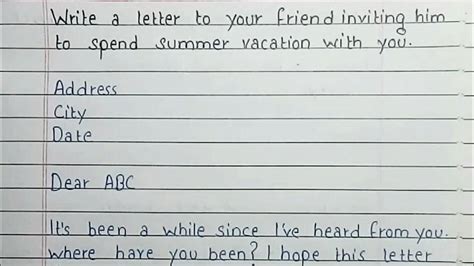 Write a letter to your friend inviting him
to spend summer vacation with you.
Address
City
Date
Dear ABC
It's been a while since I've heard from you.
Where have you been? I hope this letter